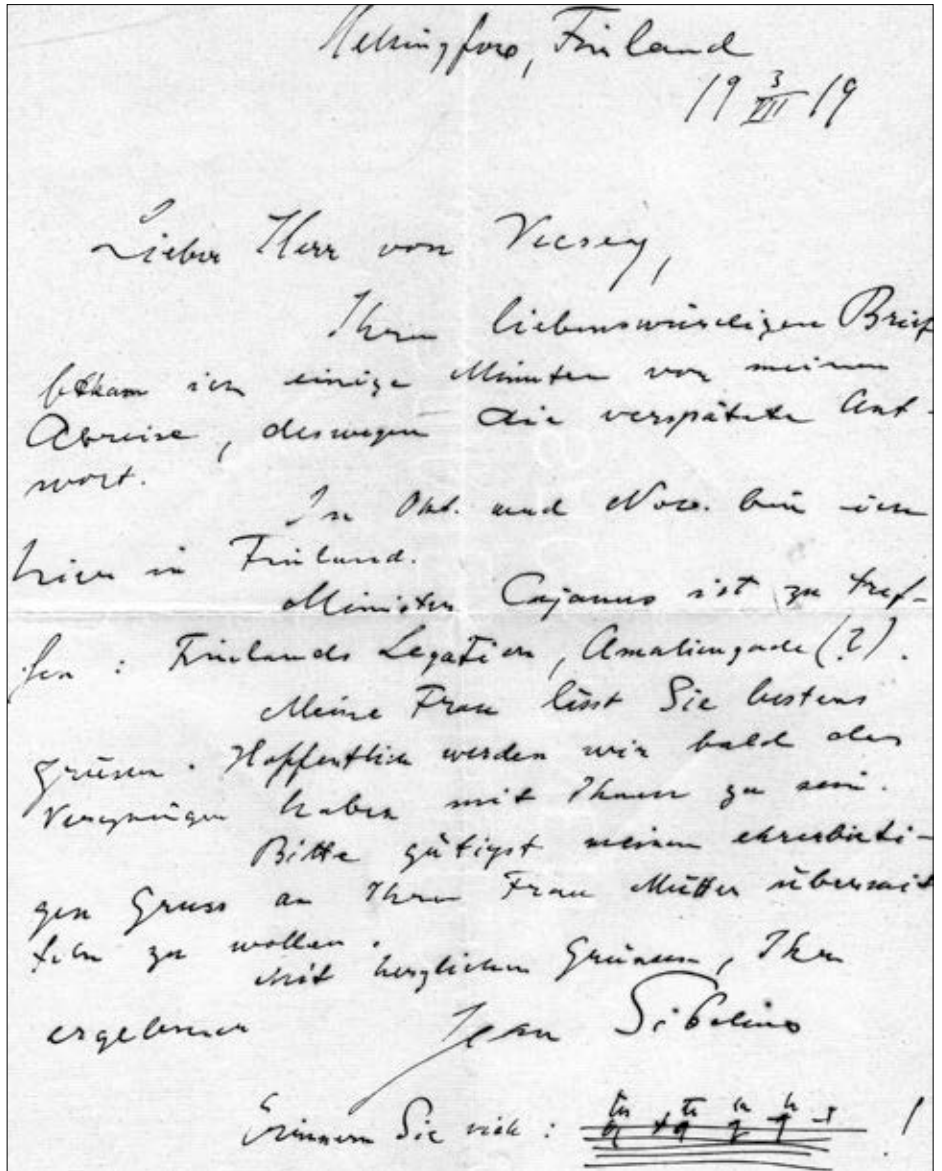 Helsingfors, Finland
19 3/VII 19
Lieber Herr von Vecsey,
Ihren liebenswürdigen Brief
bekam ich einige Minuten vor meiner
Abreise, deswegen die verspätete Ant-
wort.
In Okt. und Nov. bin ich
hier in Finland.
Minister Cajanus ist zu tref-
fen: Finlands Legation, Amaliengade (?).
Meine Frau lässt Sie bestens
grüssen. Hoffentlich werden wir bald das
Vergnügen haben mit Ihnen zu sein.
Bitte gütigst meinen ehrerbieti-
gen Gruss an Ihre Frau Mutter übermit
teln zu wollen.
Mit herzlichen Grüssen, Ihr
ergebener Jean Sibelius
Erinnern Sie sich: !